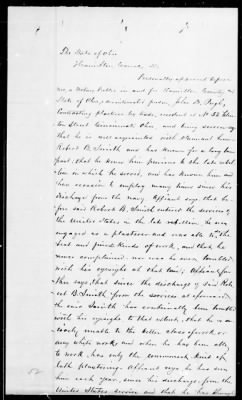 The State of Ohio
Hamilton County, SS.
Personally appeared before
me, a Notary Public in and for Hamilton County &
State of Ohio, John B. Pugh,
Contracting plasterer by trade, resident at No 52
Street Cincinnati Ohio, and being sworn says
that he is well acquainted with
Robert B. Smith and has known for a long time
past, that he knew him previous to the late rebel-
lion in which he served, and has known him and
had occasion to employ many times since his
discharge from the navy. Affiant says that be-
fore said Robert B. Smith entered the services of
the United States in the late rebellion he was
engaged as a plasterer and was able to do the
best and finest kinds of work, and that he
never complained nor was he ever troubled
with his eyesight at that time; Affiant fur-
ther says, that since the discharge of said Rob-
ert B. Smith from the services as aforesaid,
the said Smith has continually been troubled
with his eyesight to that extent, that he is
unable to the better class of work, or
any white work and when he has been able
to work, has only the commonest kind of
lath plastering. Affiant says he has seen
him each year, since his discharge from the
United States service and that he has always